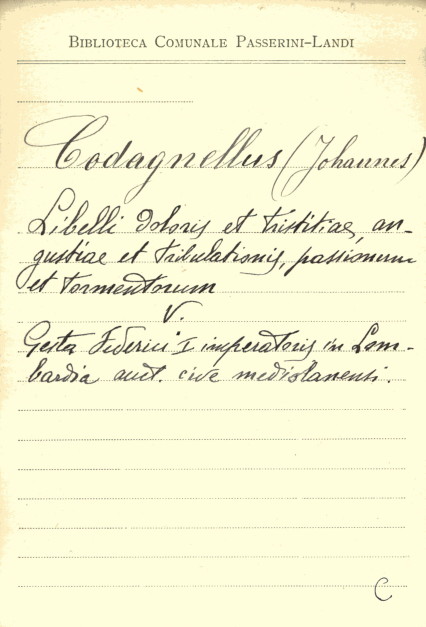 BIBLIOTECA COMUNALE PASSERINI-LANDI
Codagnellus (Johannes)
Libelli doloris et tristitiae, an-
gustiae et tribulationis, passionum
et tormentorum
V.
Gesta Federici I imperatoris in Lom-
bardia auct. cive mediolanensi.
C